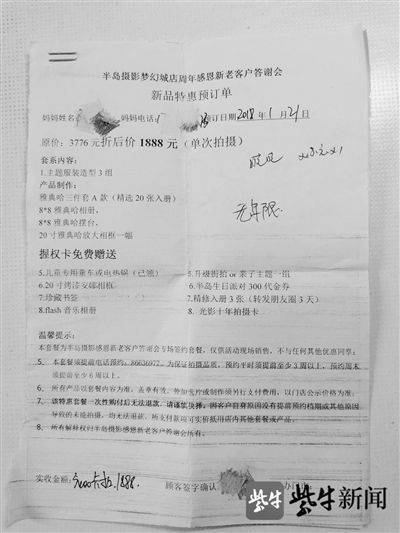 半岛摄影梦幻城店周年感恩新老客户答谢会
新品特惠预订单
妈妈姓名 妈妈电话 预订日期2018年1月21日
原价：3776元折后价1888元（单次拍摄）
套系内容：
1.主题服装造型3组
产品制作：
雅典哈三件套A款（精选20张入册）
8*8雅典哈相册，
8*8雅典哈摆台，
20寸雅典哈放大相框一幅
无年限
握权卡免费赠送
5.儿童专用童车或电热锅（已领） 5.升级街拍or亲子主题一组
6.20寸烤漆皮雕相框 6.半岛生日派对300代金券
7.珍藏书签 7.精修入册3张（转发朋友圈3天）
8.flash音乐相册 8.光影十年拍摄卡
温馨提示：
本套餐为半岛摄影感恩新老客户答谢会专场签约套餐，仅供活动现场销售，不与任何其他优惠同享；
5、本套餐须提前电话预约：86636977，为保证拍摄品质，预约平时须提前至少3周以上，预约周末
须提前至少6周以上。
6、所有产品以套餐内容为准，盖章有效。外加先片或制作须另行支付费用，以门店公示价格为准；
7、该特惠套餐一次性购付后无法退款，请谨慎抉择；因客户自身原因没有提前预约档期或其他原因
导致的未能拍摄，均无法退款，所支付款项可实价抵用店内其他套餐或产品。
8、所有解释权归半岛摄影感恩新老客户答谢会所有。
实收金额： 1888. 顾客签字确认
紫牛 紫牛新闻